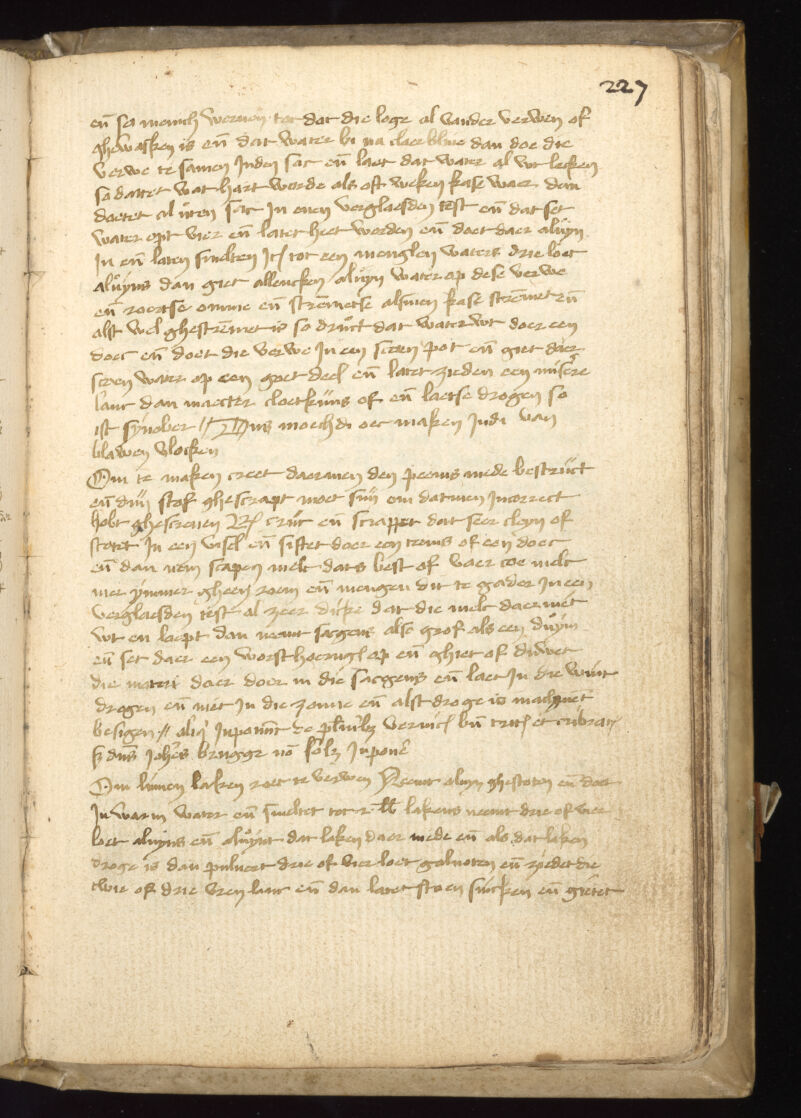 227
en̄ so menich werven tot dat die loge al vander verwen of
ghewasken is en̄ dat water bi na claer blive dan doe die
verwe te samen Inden sac en̄ laet dat water al wt lecken
so dattet wat hart worde als oft weken kase waer dan
doetet al uten sac In enen verglaesden test en̄ dat set
water opt vier en̄ latet heet werden en̄ doet daer aluyn
In en̄ laten smelten tot een menglen waters drie loet
aluyns dan giet allencken aluyn water op dese verwe
en̄ roertse omme en̄ stremetse alsmen kase stremet en̄
alst wel ghestremet is so druct dat water wt doer een
doec en̄ doet die verwe In een scoen pot en̄ giet daer
scoen water op een goet deel en̄ latet zieden een misere
lanc dan maecter cloetkijns of en̄ laetse drogen so
ist synober // Dus moechdi oec maken Indi van
blawen vlocken
Om te maken creet daermen den peerms mede bestruct
en̄ dun stof ghescrapt moet sijn om datmen Incorrect
hebt ghescreven Rc̄ crijt en̄ scrappet dat seer cleyn of
stotet In een visel en̄ siftet doer een teems of een doec
en̄ dan nem scapen melc dats best of vaer coe melc
mer ymmer gheen room en̄ mengen dit te gader In een
verglaesden test al zeer dicke dat die melc daer met
wt en loept dan neemt sacgens also grof als een duym
en̄ set daer een worsthoerngl op en̄ ghiet of duwet
die materi daer doer in die sacgens en̄ laet In die wint
drogen en̄ niet In die zonne en̄ alst droge is machmet
besigen //
Om linnen laken root te verwen Neemt aluyn ghestoten en̄ doet
In warm water en̄ smeltet tot lb lakens neemt drie of vier
loet aluyns en̄ aluynt dat laken daer mede en̄ als dat laken
droge is dan pulvert drie of vier loet galnoten en̄ ziedet die
twie of drie vren lanc en̄ dan latet stoen sincken en̄ gietet